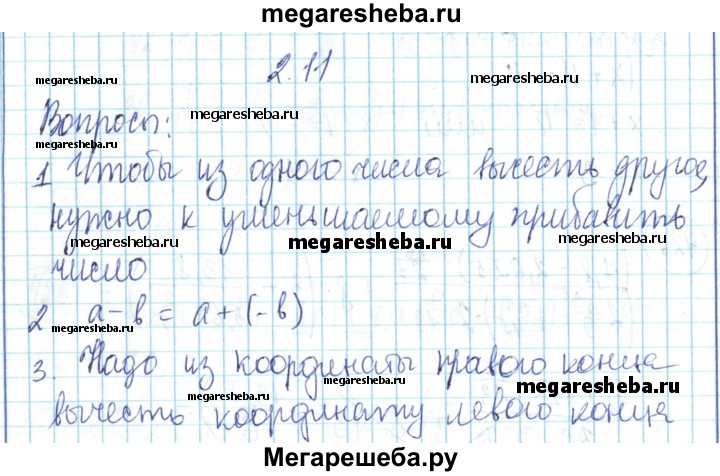 megaresheba.ru
2.11
megaresheba.ru
megaresheba.ru
megaresheba.ru
Вопросы:
megaresheba.ru
1 Чтобы из одного числа вычесть другое,
нужно к уменьшаемому прибавить
megaresheba.ru
megaresheba.ru
megaresheba.ru
число
2 a-b = a+(-b)
megaresheba.ru
3. Надо из координаты правого конца
megaresheba.ru
megaresheba.ru
megaresheba.ru
вычесть координату левого конца
megaresheba.ru
Мегарешеба.ру